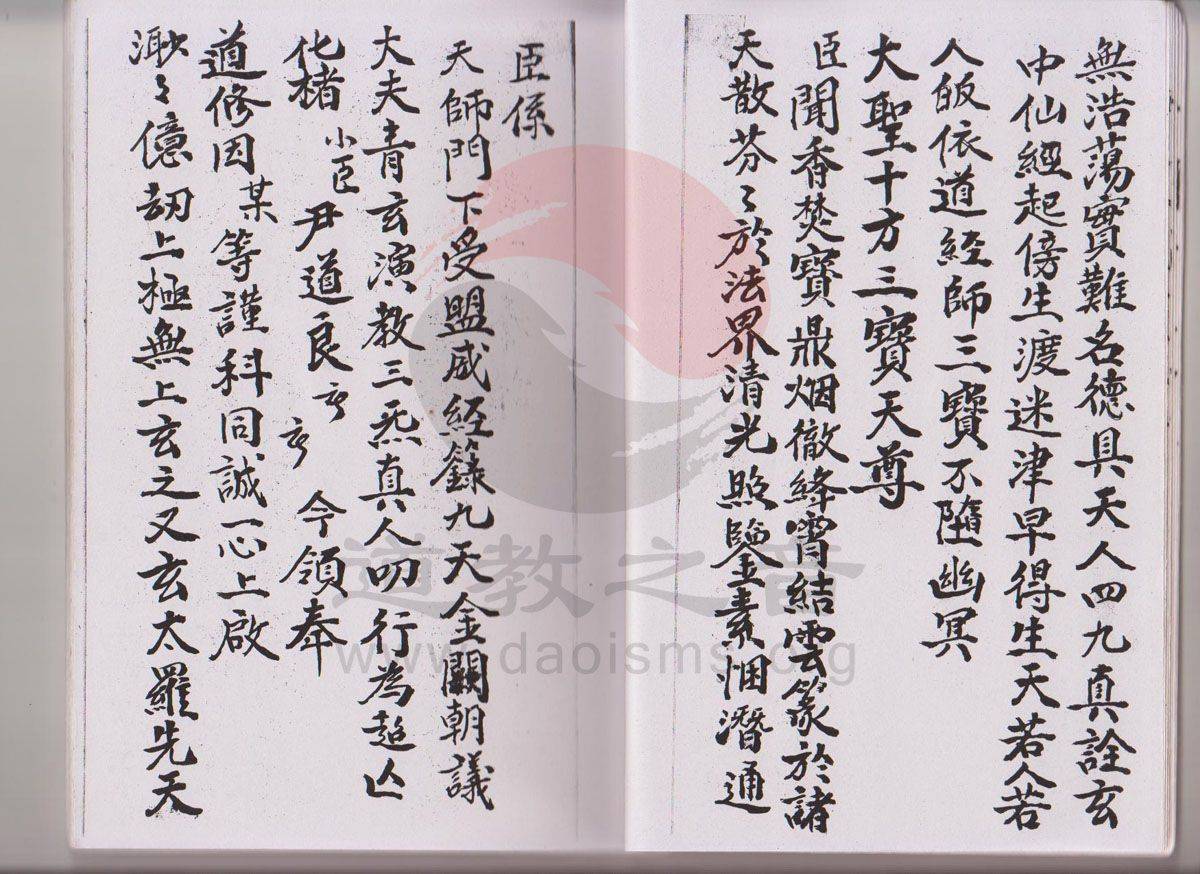 無浩蕩實難名德具天人四九真詮玄
中仙經起傍生渡迷津早得生天若人若
人皈依道經師三寶不墮幽冥
大聖十方三寶天尊
臣聞香焚寶鼎烟徹絳霄結雲篆於諸
天散芬〻於法界清光照鑒素悃潛通
臣係
天師門下受盟威經籙九天金闕朝議
大夫青玄演教三炁真人叨行為超亾
化楮 小臣 尹道良 今領奉
道修因 某 等謹科同誠心上啟
渺〻億刼上極無上玄之又玄太羅先天
道教之音
www.daoisms.org